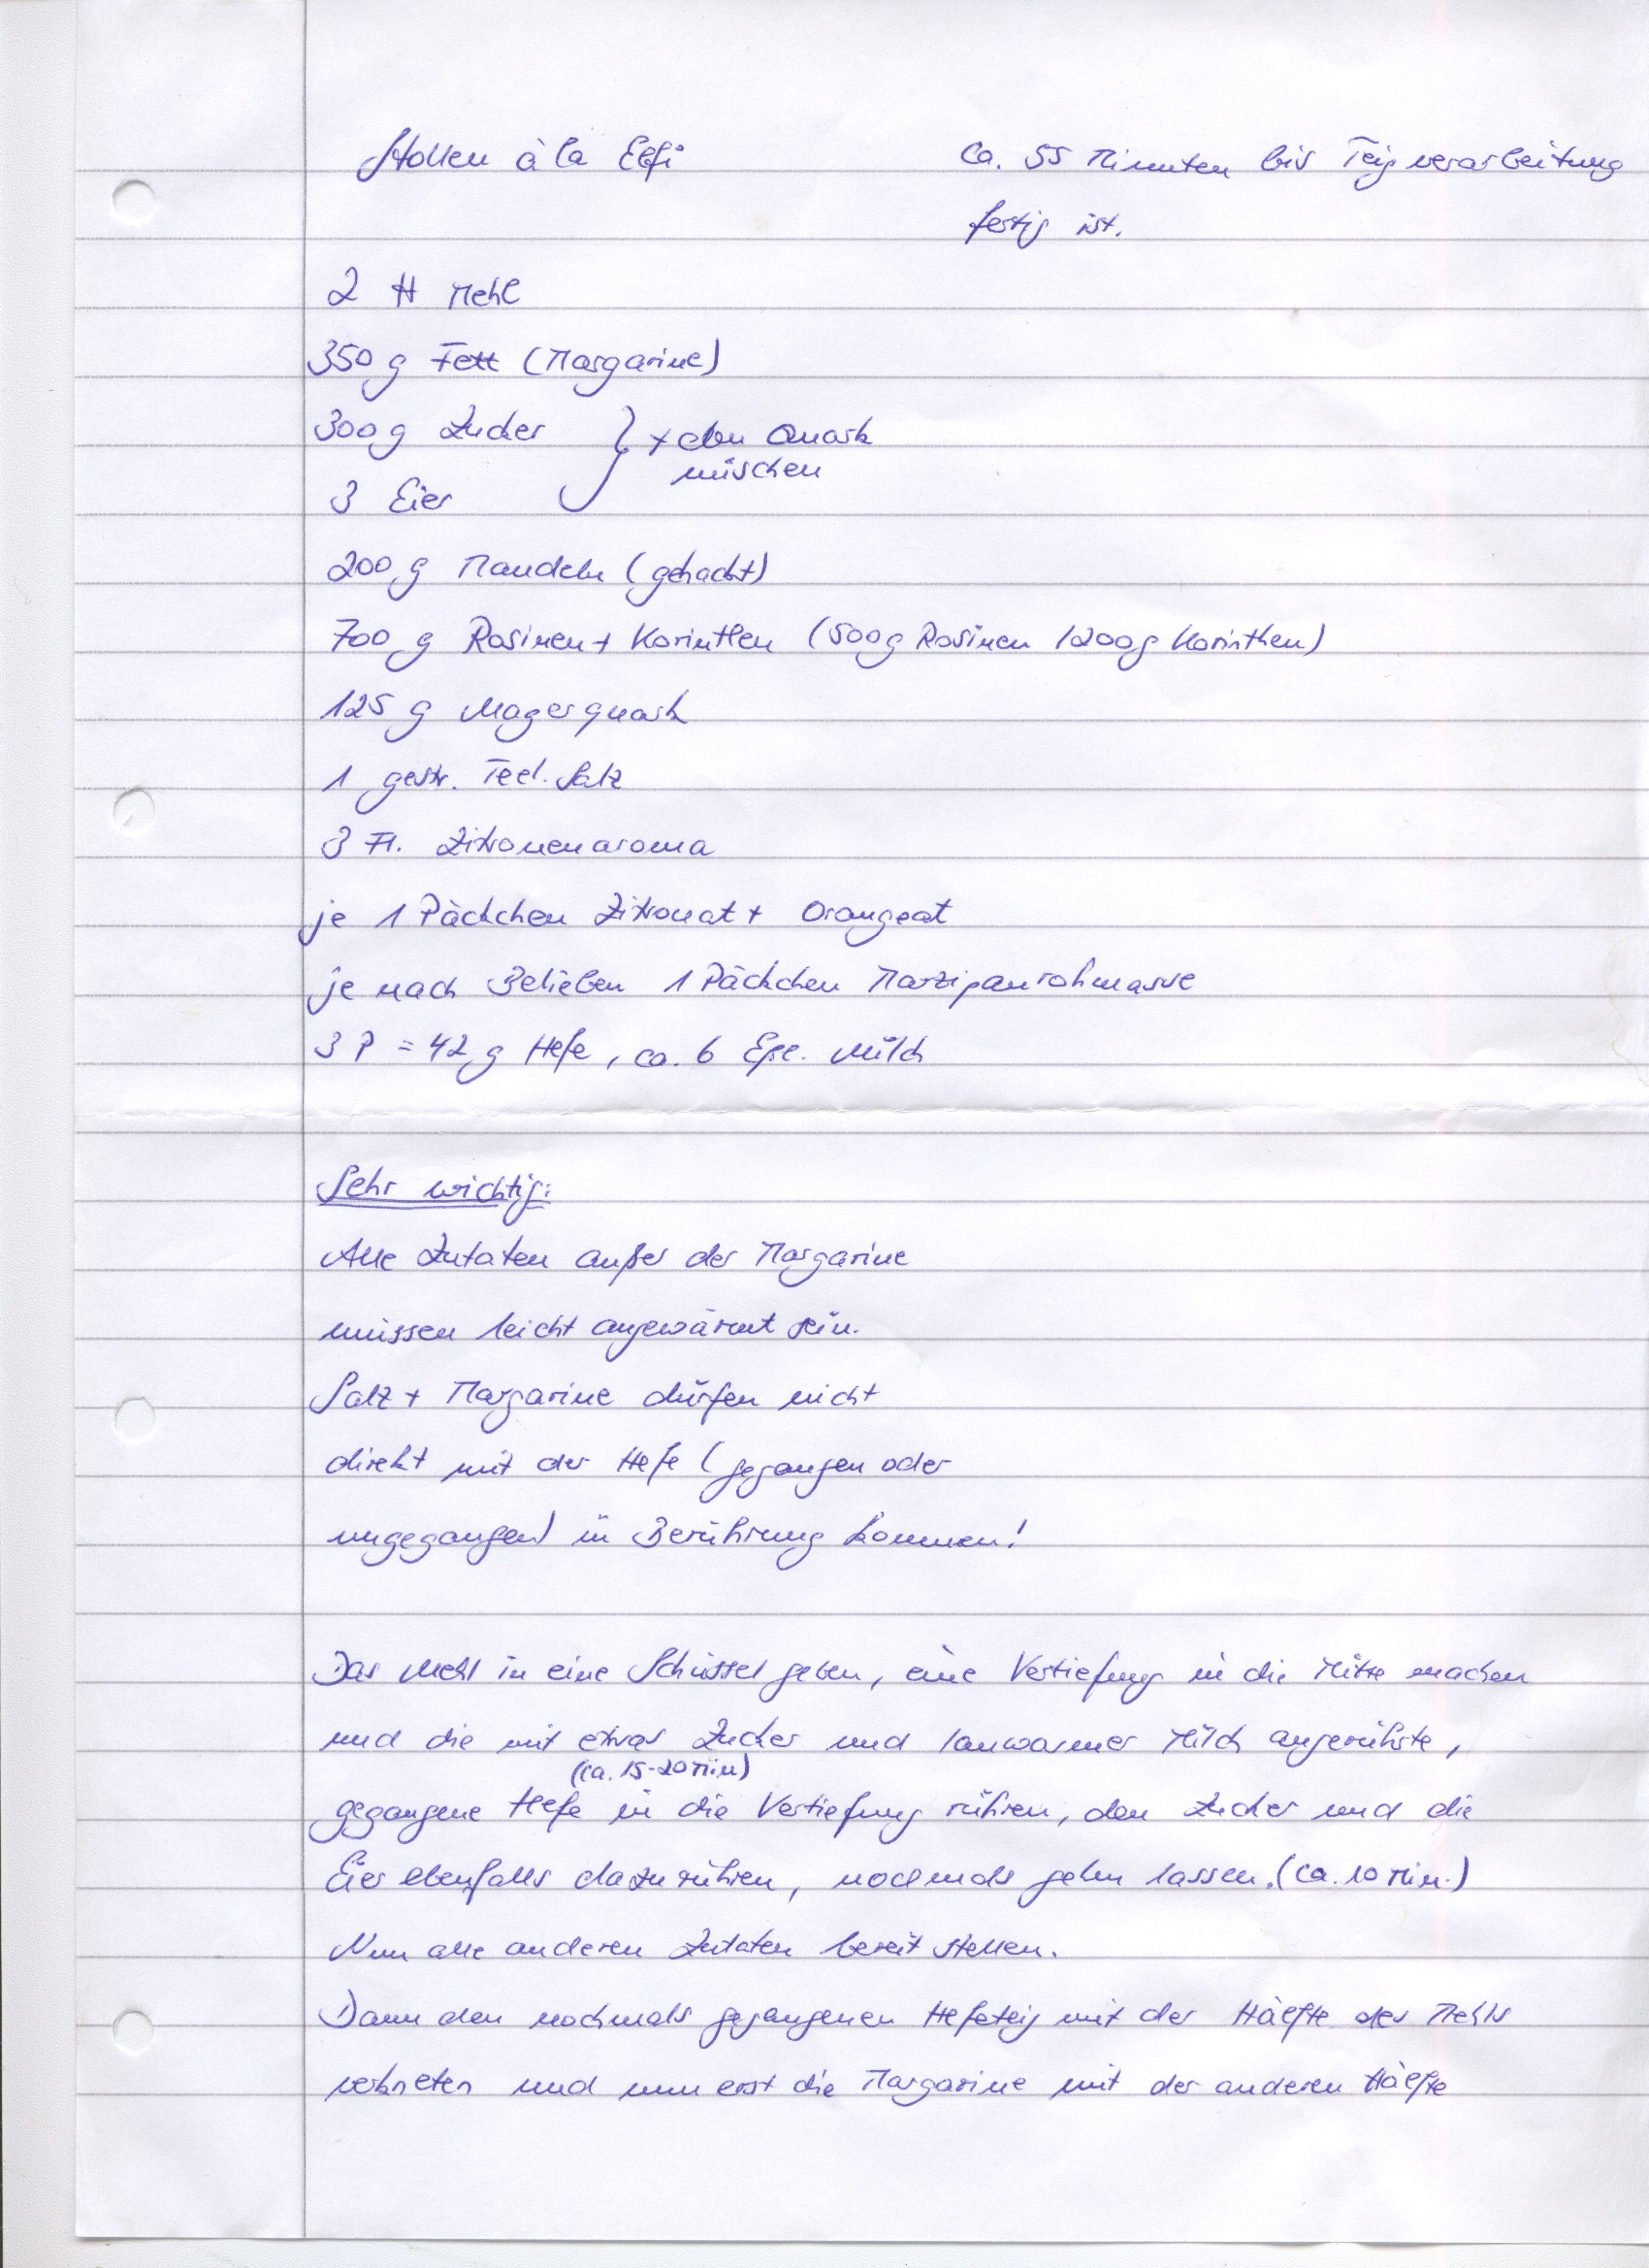 Stollen à la Elfi
ca. 55 Minuten bis Teigverarbeitung
fertig ist.
2 ℔ Mehl
350 g Fett (Margarine)
300 g Zucker
+ den Quark
mischen
3 Eier
200 g Mandeln (gehackt)
700 g Rosinen + Korinthen (500g Rosinen / 200g Korinthen)
125 g Magerquark
1 gestr. Teel. Salz
3 Fl. Zitronenaroma
je 1 Päckchen Zitronat + Orangeat
je nach Belieben 1 Päckchen Marzipanrohmasse
3 P = 42 g Hefe, ca. 6 Essl. Milch
Sehr wichtig:
Alle Zutaten außer der Margarine
müssen leicht angewärmt sein.
Salz + Margarine dürfen nicht
direkt mit der Hefe (gegangen oder
ungegangen) in Berührung kommen!
Das Mehl in eine Schüssel geben, eine Vertiefung in die Mitte machen
und die mit etwas Zucker und lauwarmer Milch angerührte,
(ca. 15-20 Min)
gegangene Hefe in die Vertiefung rühren, den Zucker und die
Eier ebenfalls dazurühren, nochmals gehen lassen. (ca. 10 Min.)
Nun alle anderen Zutaten bereit stellen.
Dann den nochmals gegangenen Hefeteig mit der Hälfte des Mehls
verkneten und nun erst die Margarine mit der anderen Hälfte